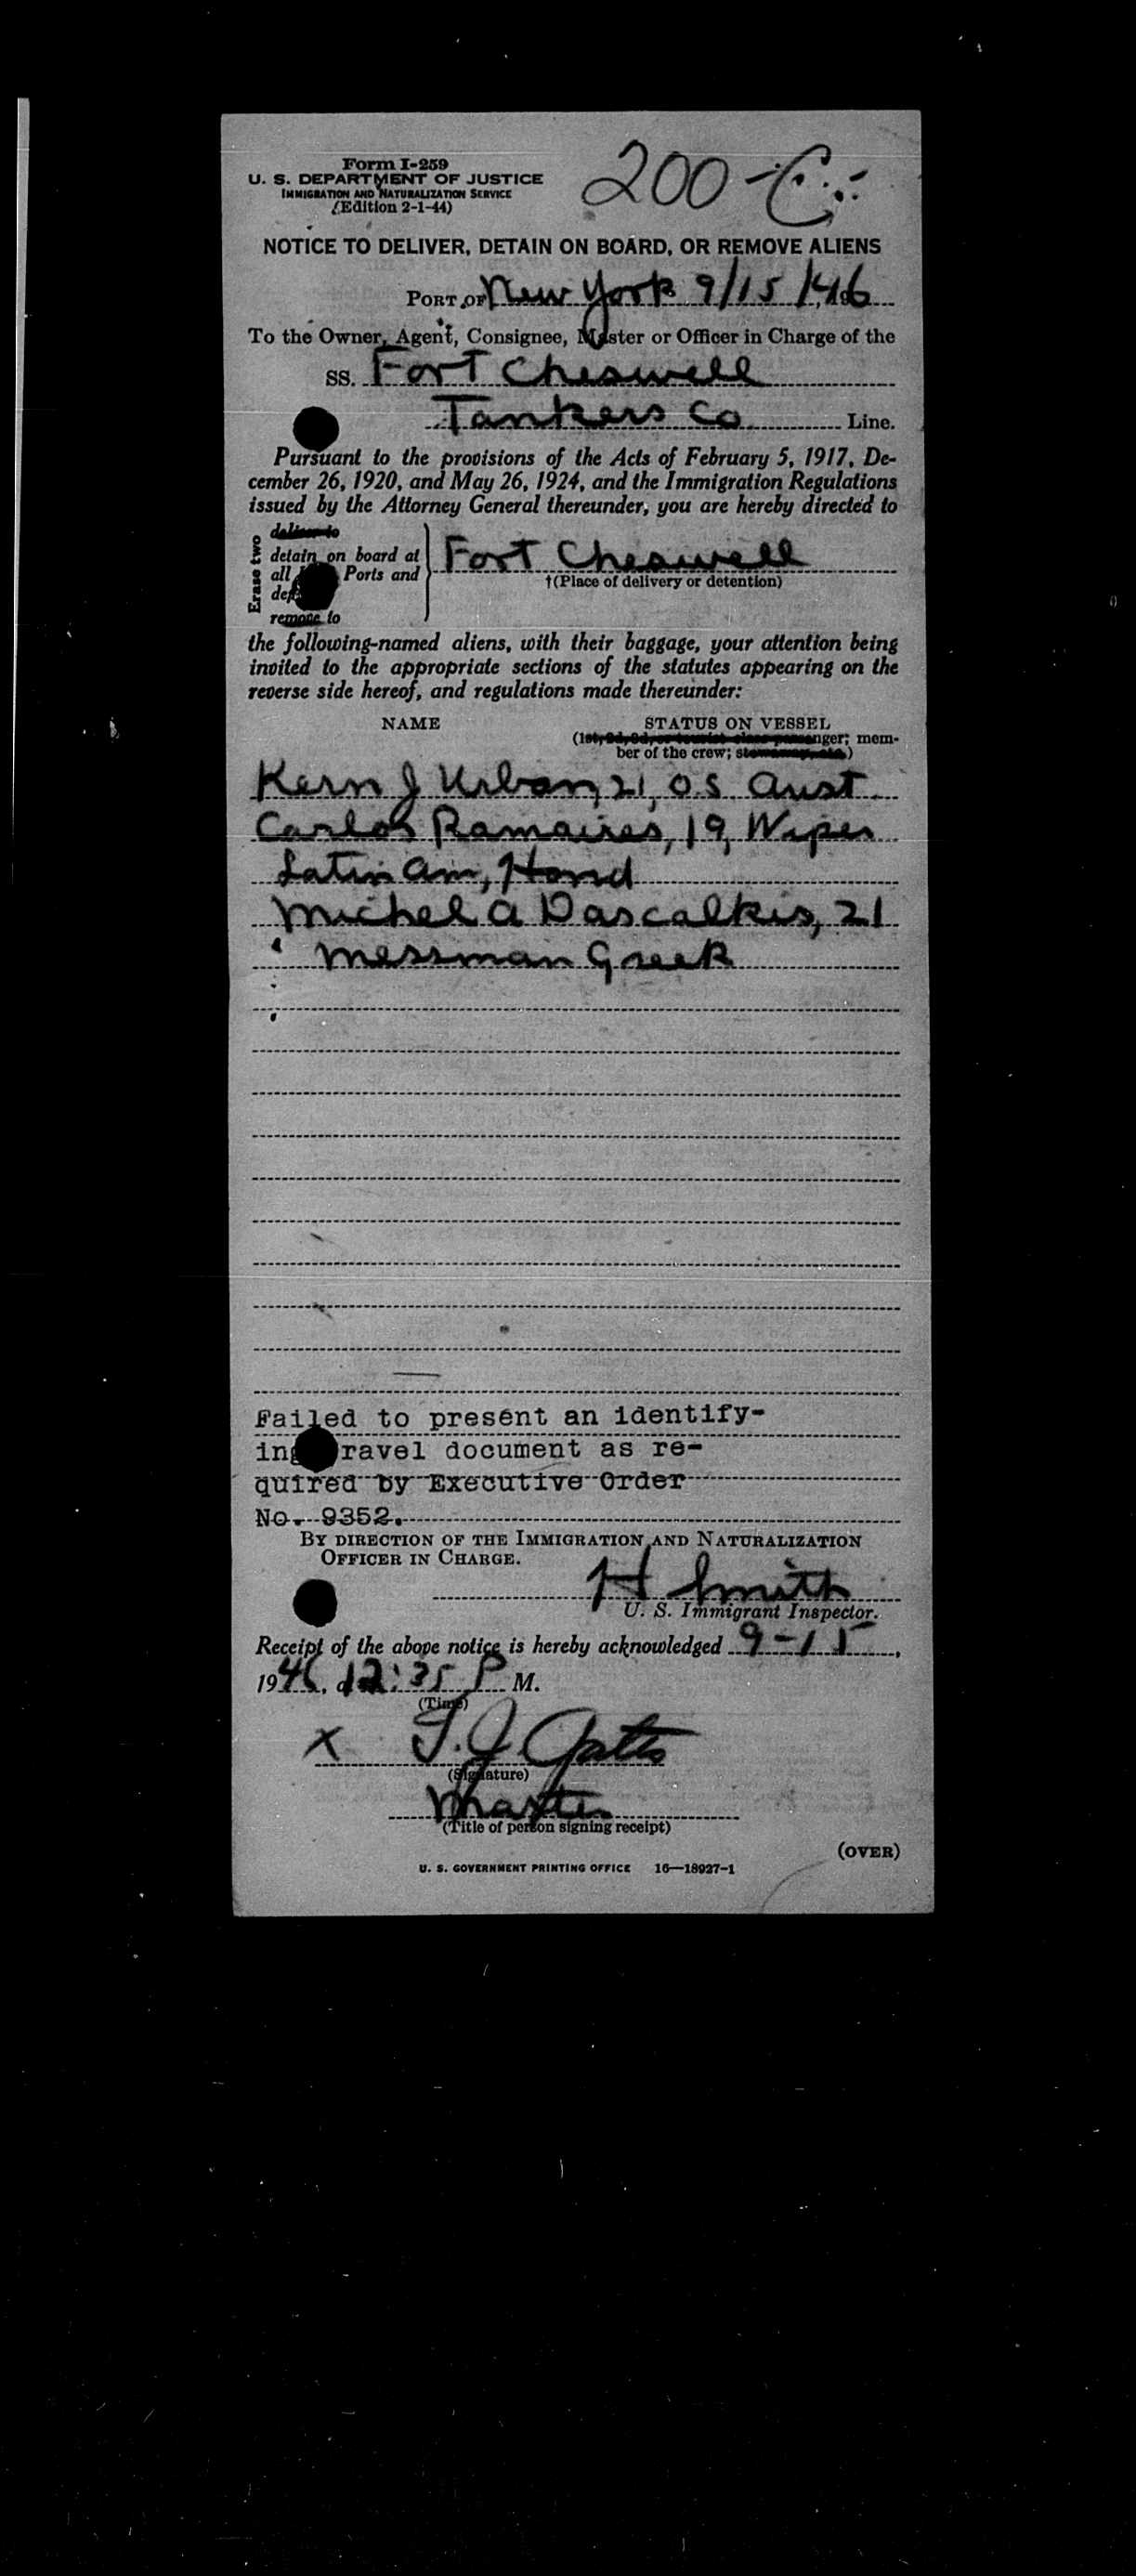 Form I-259
200-C
U. S. DEPARTMENT OF JUSTICE
IMMIGRATION AND NATURALIZATION SERVICE
(Edition 2-1-44)
NOTICE TO DELIVER, DETAIN ON BOARD, OR REMOVE ALIENS
PORT OF New York 9/15/46
To the Owner, Agent, Consignee, Master or Officer in Charge of the
SS. Fort Cheswell
Tankers Co Line.
Pursuant to the provisions of the Acts of February 5, 1917, De-
cember 26, 1920, and May 26, 1924, and the Immigration Regulations
issued by the Attorney General thereunder, you are hereby directed to
Erase two
deliver to
detain on board at
all Ports and
remove to
Fort Cheswell
†(Place of delivery or detention)
the following-named aliens, with their baggage, your attention being
invited to the appropriate sections of the statutes appearing on the
reverse side hereof, and regulations made thereunder:
NAME STATUS ON VESSEL
(1st, 2d, 3d, or tourist class passenger; mem-
ber of the crew; stowaway, etc.)
Kern J Urban, 21, O.S Aust
Carlos Ramaires, 19, Wiper
Latin Am, Hond
Michel A Dascalkis, 21
messman Greek
Failed to present an identify-
ing ravel document as re-
quired by Executive Order
No. 9352.
BY DIRECTION OF THE IMMIGRATION AND NATURALIZATION
OFFICER IN CHARGE.
H Smith
U. S. Immigrant Inspector.
Receipt of the above notice is hereby acknowledged 9-15,
1946, 12:35 P M.
(Time)
x T. J. Gates
(Signature)
Master
(Title of person signing receipt)
(OVER)
U. S. GOVERNMENT PRINTING OFFICE 16—18927-1